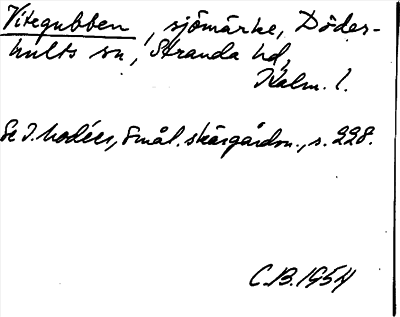 Vitegubben, sjömärke, Döder-
hults sn, Stranda hd,
Kalm. l.
Se I. Modéer, Smål. skärgårdsn., s. 228.
C.B. 1954